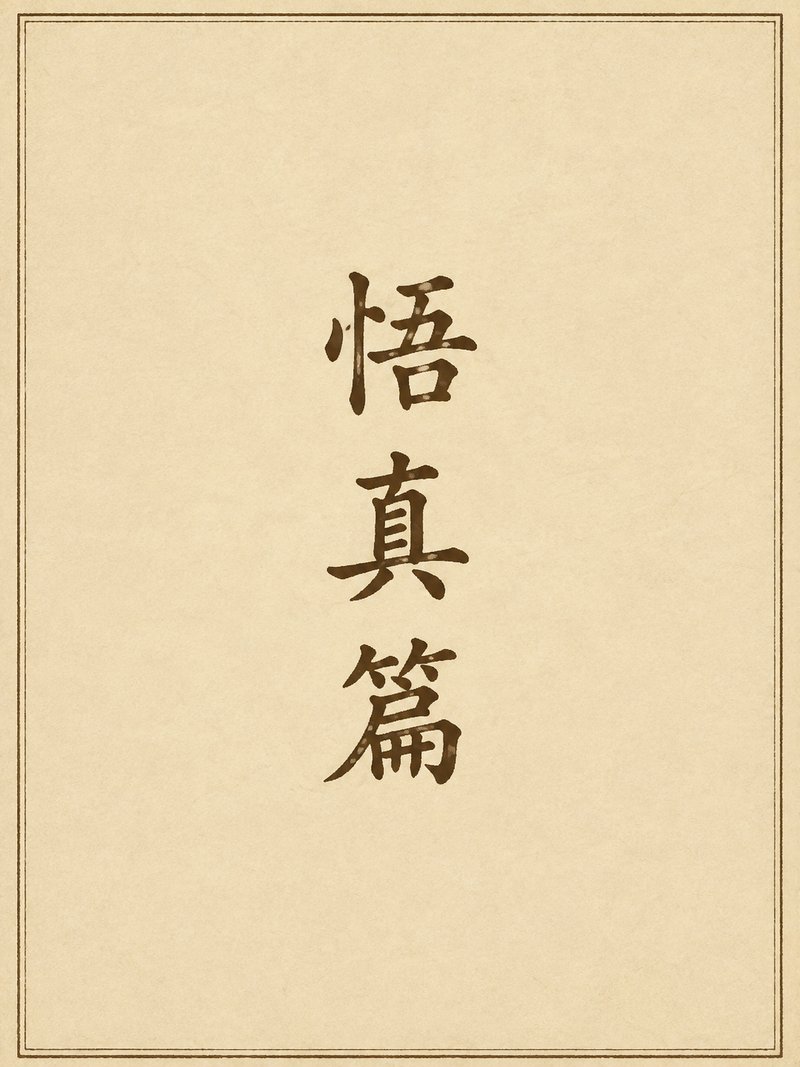 悟真篇